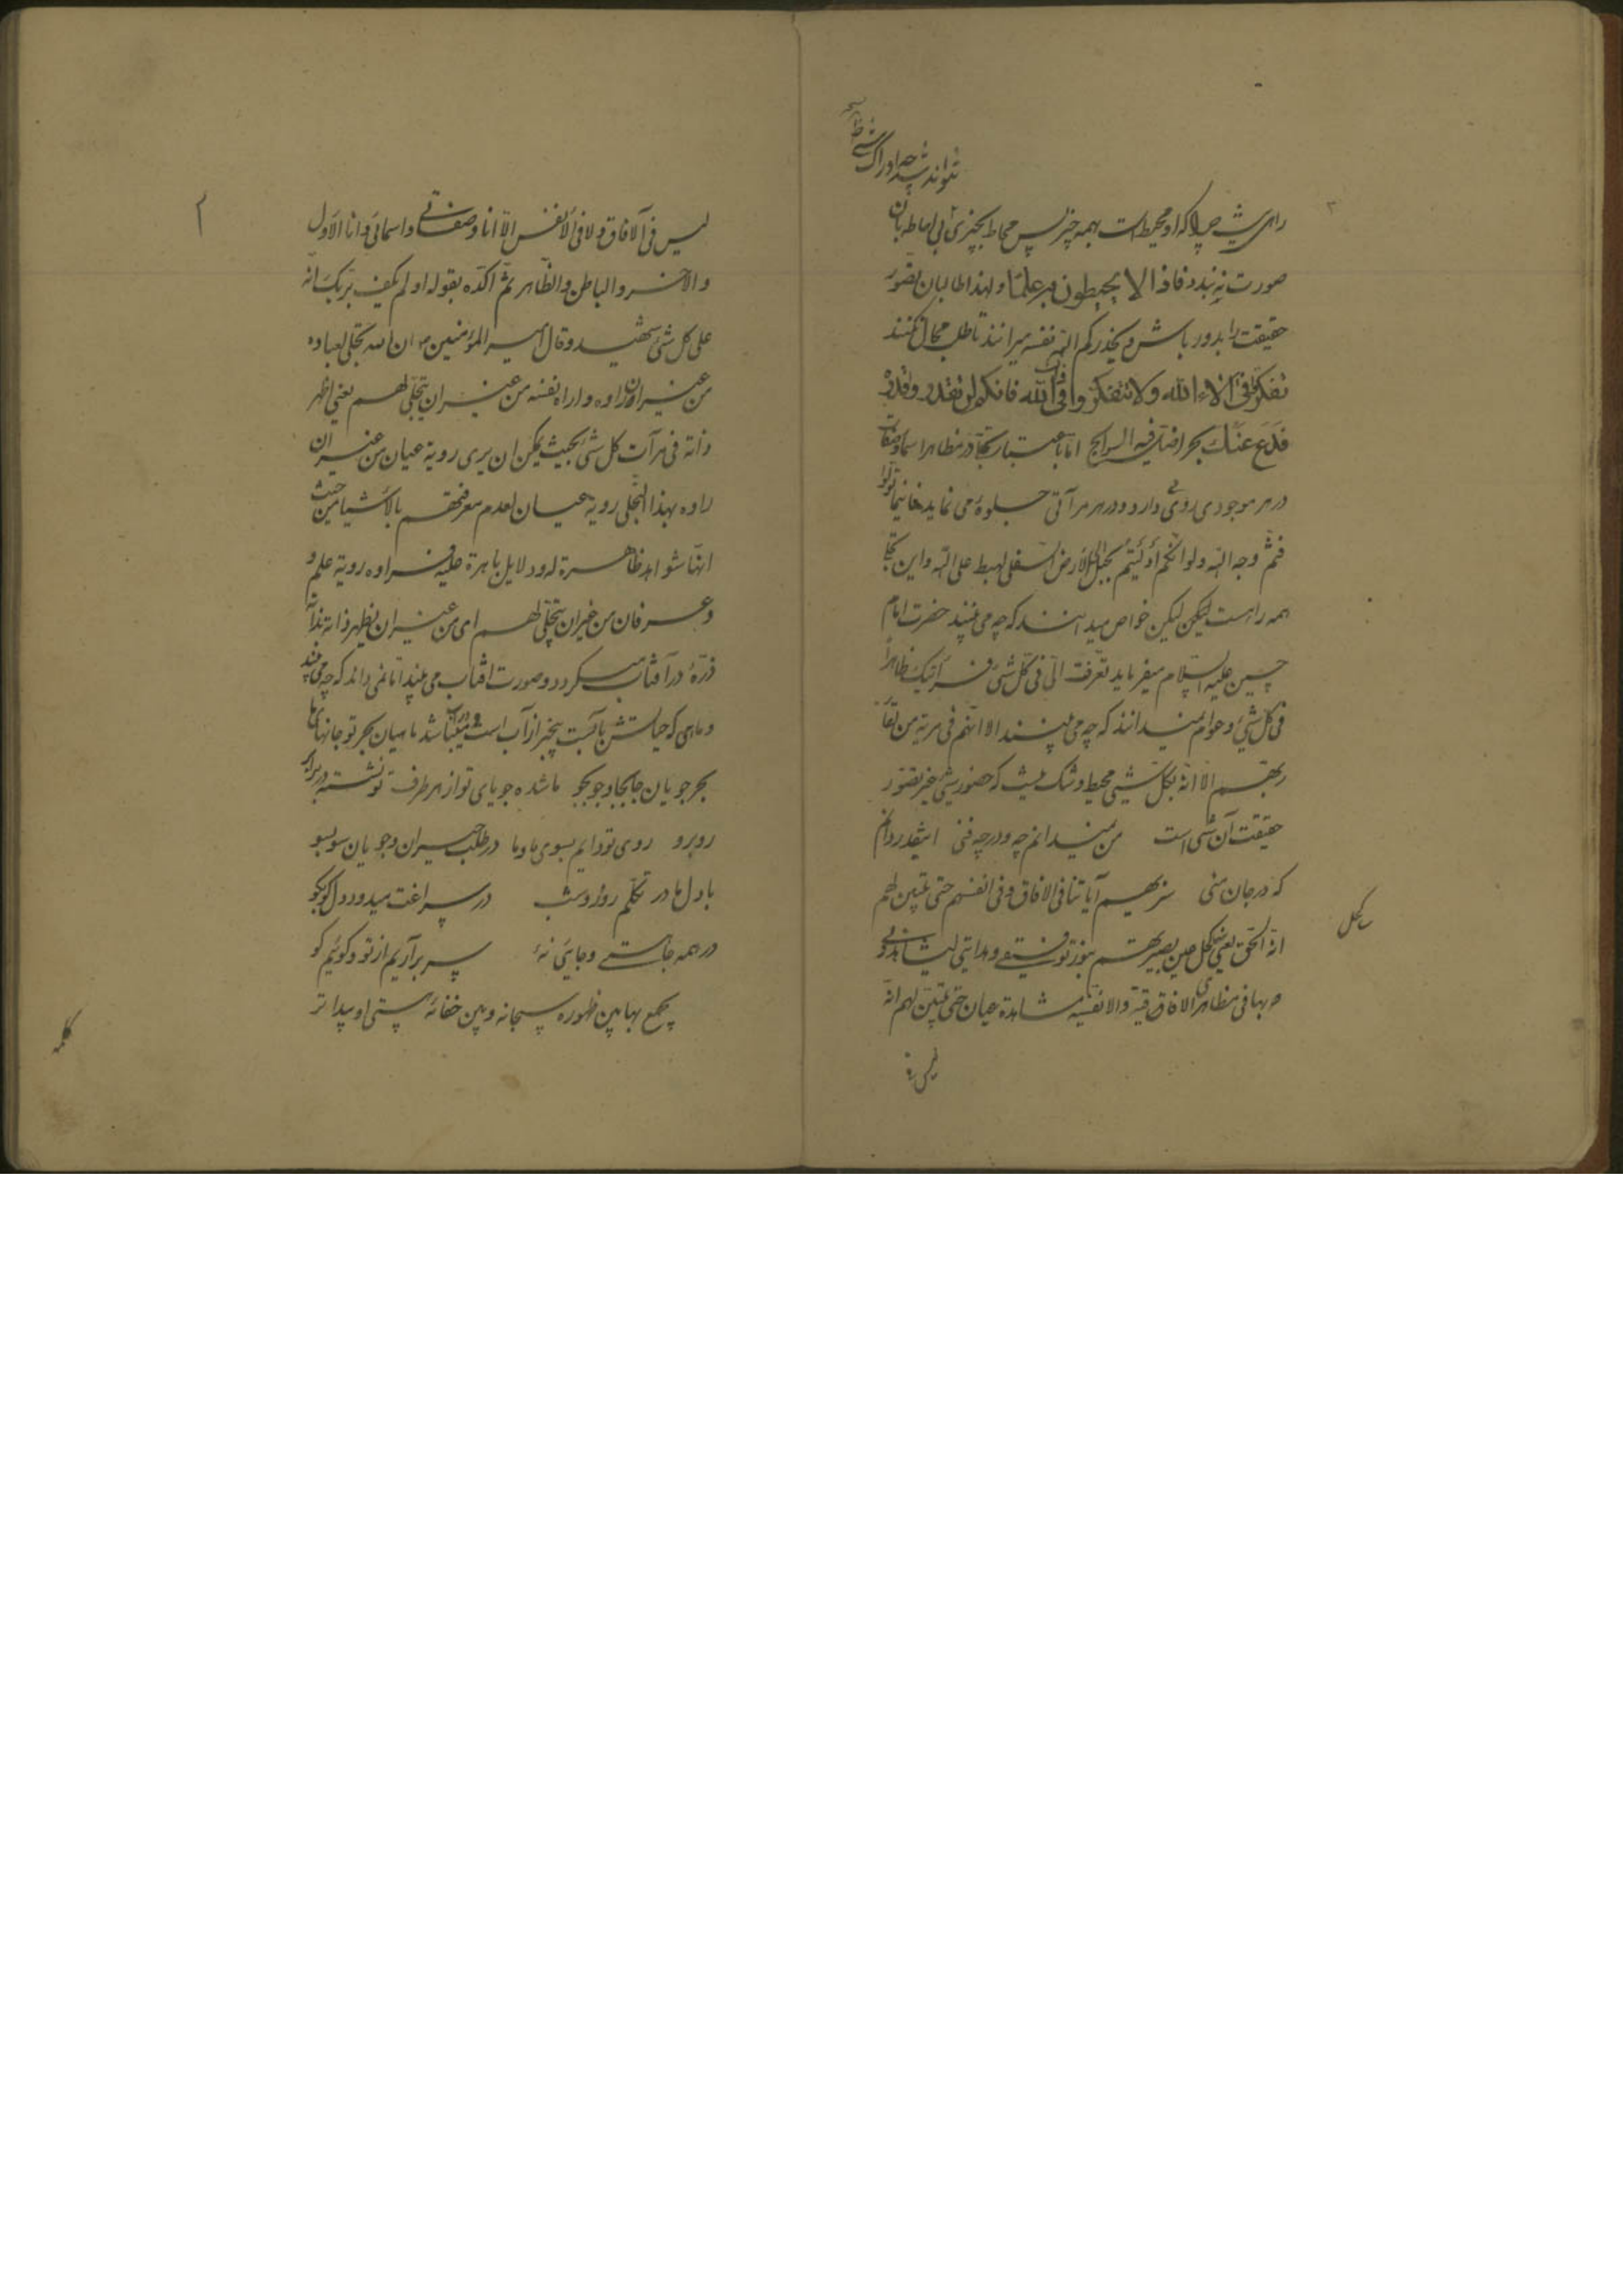 نتواند شد چه ادراک شی
راهی نیست چرا که او محیط است بهمه چیز پس محاط بچیزی بی احاطه بآن
صورت نه بندد فاذا لا یحیطون به علما و لهذا طالبان تصور
حقیقت را بدور باش و یحذرکم الله نفسه میرانند تا طلب محال نکنند
تفکروا فی الاء الله ولا تتفکروا فی ذات الله فانکم لن تقدروا قدره
فدع عنک بحرا ضل فیه السوابح اما باعتبار تجلی در مظاهر اسما و صفات
در هر موجودی روئی دارد و در هر مرآتی جلوه می نماید فاینما تولوا
فثم وجه الله ولو انکم ادلیتم بحبل الی الارض السفلی لهبط علی الله و این تجلی
همه را هست لیکن خواص میدانند که چه می بینند حضرت امام
حسین علیه السلام میفرماید تعرفت الی فی کل شئ فرأیتک ظاهرا
فی کل شئ و عوام نمیدانند که چه می بینند الا انهم فی مریة من لقاء
ربهم الا انه بکل شیء محیط و شک نیست که حضور شئ غیر تصور
حقیقت آن شی است من نمیدانم چه و در چه فنی اینقدر دانم
که در جان منی سنریهم آیاتنا فی الافاق و فی انفسهم حتی یتبین لهم
انه الحق یعنی سنکحل عین بصیرتهم بنور توفیقی و هدایتی لیشاهدونی
فی مظاهری الافاقیة والانفسیة مشاهدة عیان حتی یتبین لهم انه
سنکحل
لیس فی
لیس فی الآفاق ولا فی الانفس الا انا و صفاتی و اسمائی و انا الاول
والاخر والباطن والظاهر ثم اکده بقوله اولم یکف بربک انه
علی کل شئ شهید و قال امیر المؤمنین ان الله تجلی لعباده
من غیر ان راوه و اراهم نفسه من غیر ان یتجلی لهم یعنی اظهر
ذاته فی مرآت کل شئ بحیث یمکن ان یری رویة عیان من غیر ان
راوه بهذا التجلی رویة عیان لعدم معرفتهم بالاشیا من حیث
انها شواهد ظاهرة له و دلایل باهرة علیه فراوه رویة علم و
و عرفان من غیر ان یتجلی لهم ای من غیر ان یظهر ذاته بذاته
ذره در آفتاب میگردد و صورت افتاب می بیند اما نمی داند که چه می بیند
و ماهی که حیاتش بآبست بیخبر از آب است باشد ماهیان بحر تو جانهای ما
بحر جویان جابجا و جو بجو ما شده جویای تو از هر طرف تو نشسته در برابر
روبرو روی تو دایم بسوی ما و ما در طلب حیران و جویان سو بسو
با دل ما در تکلم روز و شب در سراغت میدود دل کو بکو
در همه جا هستی و جایی نهٔ سر برآریم از تو و گوئیم کو
بهابین ظهوره سبحانه و بین خفائه هستی او پیداتر